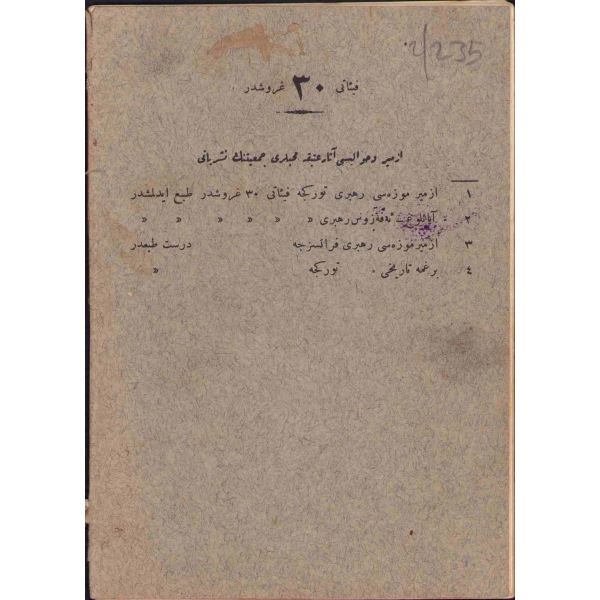 2/235
فیئاتی ۳۰ غروشدر
ازمیر و حوالیسی آثار عتیقه محبلری جمعیتنك نشریاتی
۱ ازمیر موزه‌سی رهبری تورکجه فیئاتی ۳۰ غروشدر طبع ایدلمشدر
۲ آیاثلوغ - ئەفەزوس رهبری » » » » » » »
۳ ازمیر موزه‌سی رهبری فرانسزجه درست طبعدر
٤ برغمه تاریخی . تورکجه »